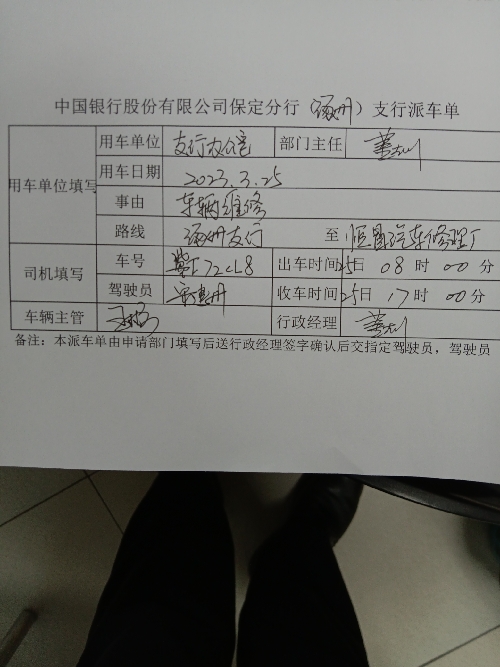 中国银行股份有限公司保定分行（涿州）支行派车单
用车单位填写 用车单位 支行办公室 部门主任
用车日期 2023.3.25
事由 车辆维修
路线 涿州支行 至 恒昌汽车修理厂
司机填写 车号 冀F72CL8 出车时间 25日 08时 00分
驾驶员 收车时间 25日 17时 00分
车辆主管 行政经理
备注：本派车单由申请部门填写后送行政经理签字确认后交指定驾驶员，驾驶员